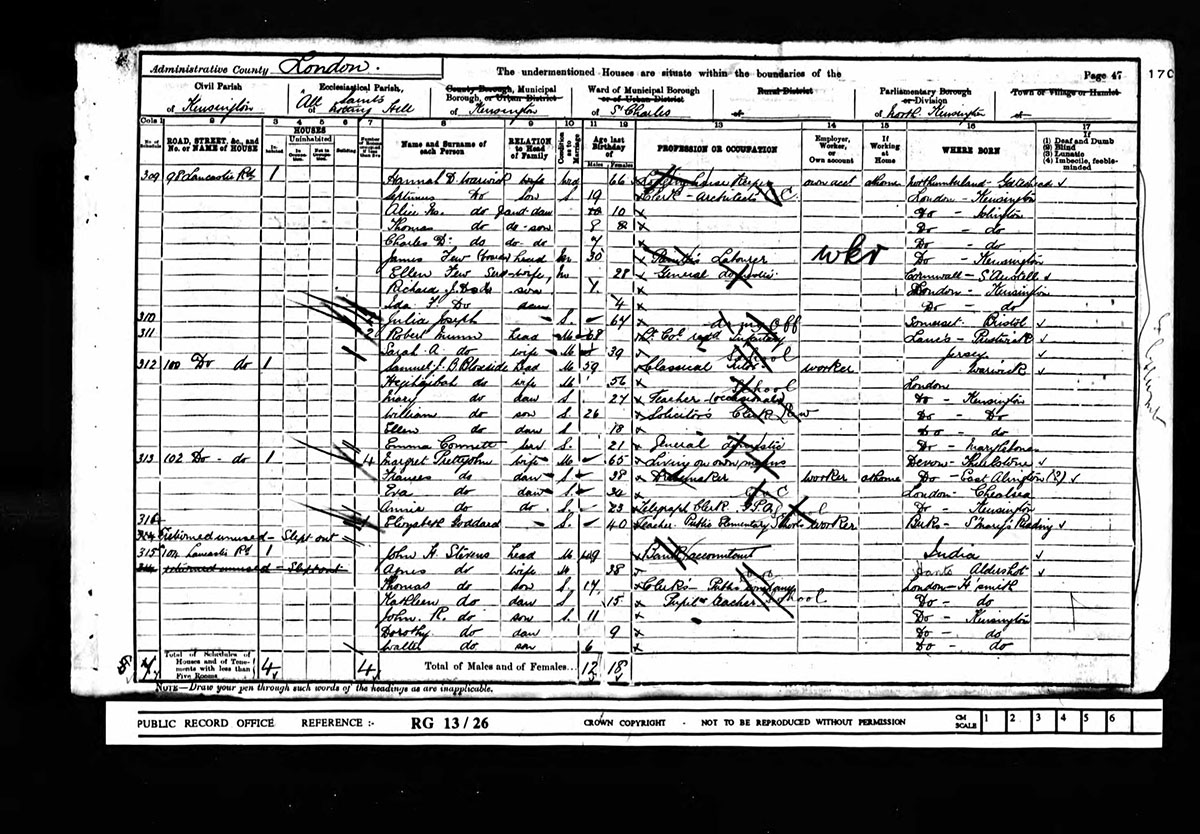 Administrative County London.
The undermentioned Houses are situate within the boundaries of the
Page 47
170
Civil Parish of Kensington
Ecclesiastical Parish, of All Saints Notting Hill
County Borough, Municipal Borough, or Urban District of Kensington
Ward of Municipal Borough or of Urban District of St Charles
Rural District of
Parliamentary Borough or Division of North Kensington
Town or Village or Hamlet of
Cols 1 2 3 4 5 6 7 8 9 10 11 12 13 14 15 16 17
No. of Schedule
ROAD, STREET, &c., and No. or NAME of HOUSE
HOUSES
Inhabited
Uninhabited
In Occupation
Not in Occupation
Building
Name and Surname of each Person
RELATION to Head of Family
Condition as to Marriage
Age last Birthday of
Males Females
PROFESSION OR OCCUPATION
Employer, Worker, or Own account
If Working at Home
WHERE BORN
(1) Deaf and Dumb
(2) Blind
(3) Lunatic
(4) Imbecile, feeble-minded
309 98 Lancaster Rd 1 Hannah D. wife wid 66 Keeper own acct at home Northumberland - Gateshead
Septimus Do son S 19 Clerk - architects London - Kensington
Alice do dau 10 Do - Islington
Thomas do do - son 8 Do - do
Charles D. do do - do 7 Do - do
James Few head M 30 Labourer wkr Do - Kensington
Ellen Few wife M 28 General domestic Cornwall - St Austell
Richard J. son 7 London - Kensington
Ida F. Do dau 4 Do - do
310 Julia Joseph S. 64 Somerset - Bristol
311 2 Robert Munn head M 68 Lt Col retd Infantry Lancs - Prestwich
Sarah A. do wife M 39 Jersey
312 100 Do do 1 Samuel head M 59 Classical Tutor School worker Warwick
do wife M 56 London
Mary do dau S. 27 Teacher (occasional) School Do - Kensington
William do son S. 26 Solicitors Clerk Law Do - Do
Ellen do dau S 18 Do - do
Emma Connett serv S. 21 General domestic Do - Marylebone
313 102 Do - do 1 4 Margret Prettyjohn wife M 65 Living on own means Devon
Frances do dau S 38 Dressmaker worker at home Do - East Alington (?)
Eva do dau S 34 London - Chelsea
Annie do do S. 23 Telegraph Clerk G.P.O. Do - Kensington
314 1 Elizabeth Goddard S. 40 Teacher Public Elementary School worker Berks - St Marys Reading
Returned unused - Slept out
315 104 Lancaster Rd 1 John H. Stevens head M 49 Bank accountant India
returned unused - Slept out Agnes do wife M 38 Hants Aldershot
Thomas do son S 17 Clerk - Public Company London - H'smith
Kathleen do dau S 15 Pupil teacher School Do - do
John R. do son S 11 Do - Kensington
Dorothy do dau 9 Do - do
Walter do son 6 Do - do
Total of Schedules of Houses and of Tenements with less than Five Rooms 4 4 Total of Males and of Females... 12 18
NOTE—Draw your pen through such words of the headings as are inapplicable.
PUBLIC RECORD OFFICE REFERENCE :- RG 13/26 CROWN COPYRIGHT - NOT TO BE REPRODUCED WITHOUT PERMISSION CM SCALE 1 2 3 4 5 6